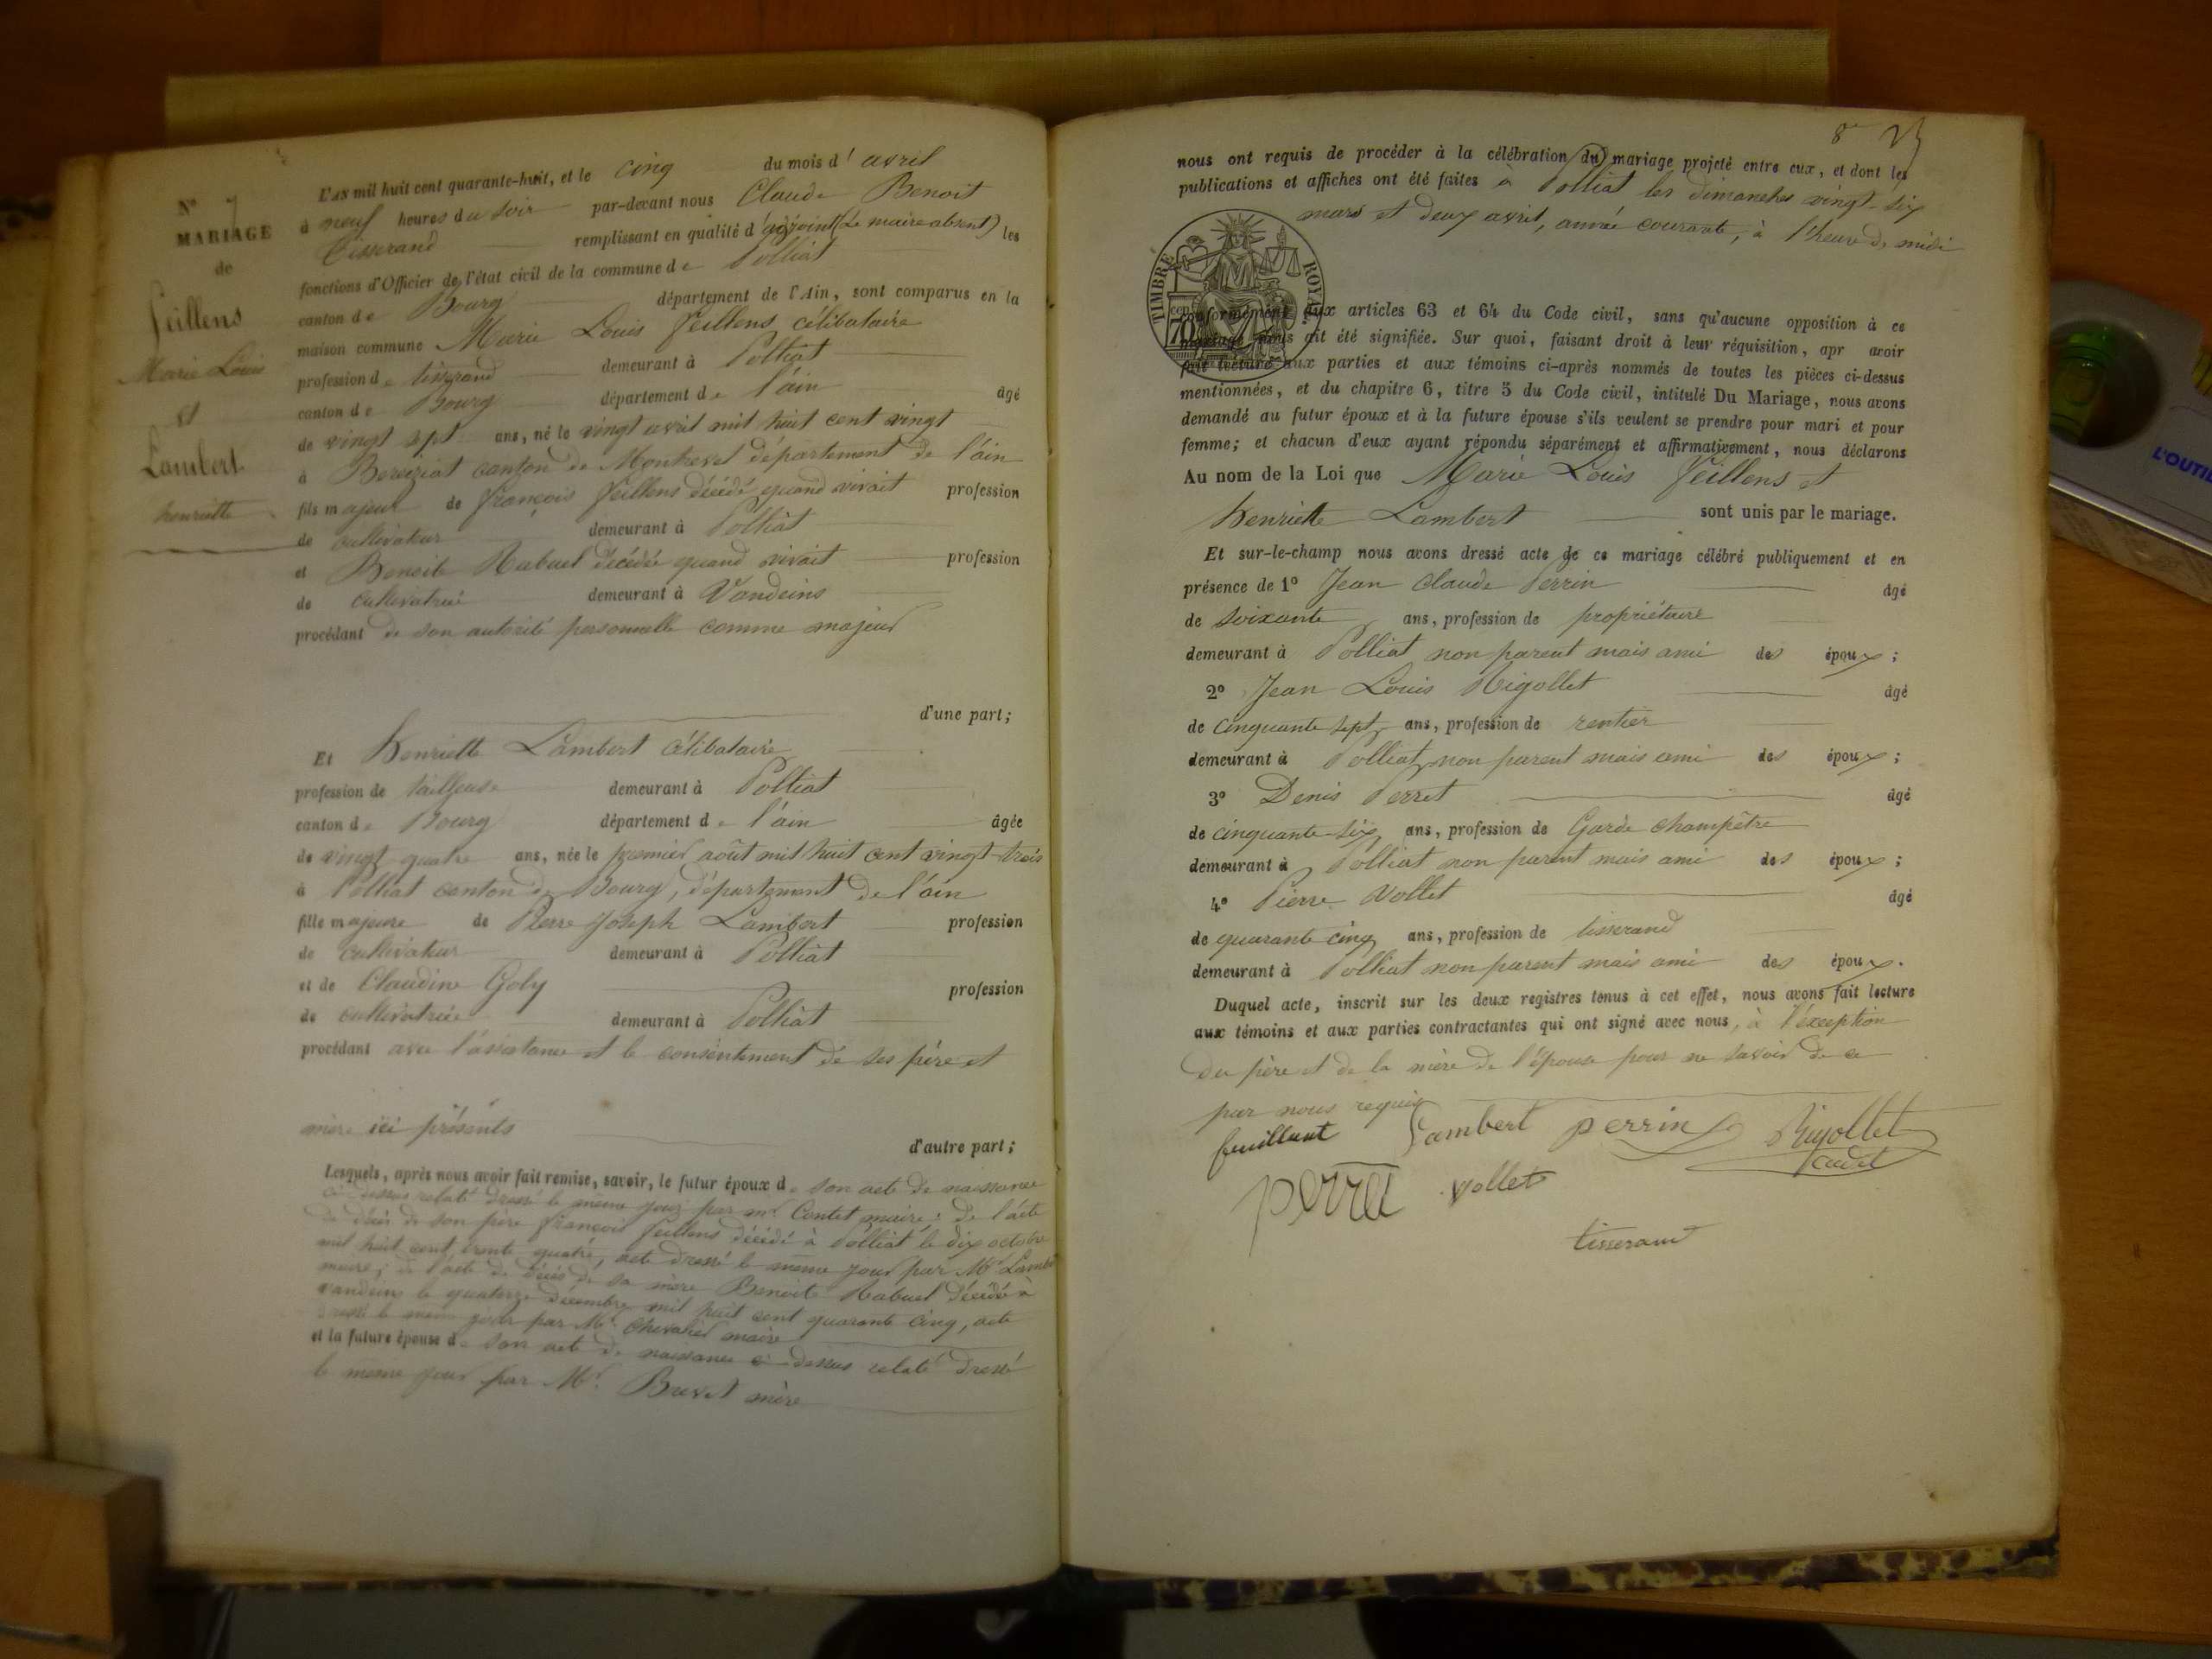 N° 7
MARIAGE
de
Feillens
Marie Louis
et
Lambert
henriette
L'AN mil huit cent quarante-huit, et le cinq du mois d'avril
à neuf heures du soir par-devant nous Claude Benoit
Tisserand remplissant en qualité d'adjoint (Le maire absent) les
fonctions d'Officier de l'état civil de la commune de Polliat
canton de Bourg département de l'Ain, sont comparus en la
maison commune Marie Louis Feillens célibataire
profession de tisserand demeurant à Polliat
canton de Bourg département de l'ain âgé
de vingt sept ans, né le vingt avril mil huit cent vingt
à Bereziat canton de Montrevel département de l'ain
fils majeur de françois Feillens décédé quand vivait profession
de cultivateur demeurant à Polliat
et Benoite Rabuel décédée quand vivait profession
de cultivatrice demeurant à Vandeins
procédant de son autorité personnelle comme majeur
d'une part;
Et Henriette Lambert célibataire
profession de tailleuse demeurant à Polliat
canton de Bourg département de l'ain âgée
de vingt quatre ans, née le premier août mil huit cent vingt-trois
à Polliat canton de Bourg, département de l'ain
fille majeure de Pierre Joseph Lambert profession
de cultivateur demeurant à Polliat
et de Claudine Goly profession
de cultivatrice demeurant à Polliat
procédant avec l'assistance et le consentement de ses père et
mère ici présents
d'autre part;
Lesquels, après nous avoir fait remise, savoir, le futur époux de son acte de naissance
ci-dessus relaté dressé le même jour par mr Contet maire; de l'acte
de décès de son père françois Feillens décédé à Polliat le dix octobre
mil huit cent trente quatre, acte dressé le même jour par Mr
maire; de l'acte de décès de sa mère Benoite Rabuel décédée à
vandeins le quatorze décembre mil huit cent quarante cinq, acte
dressé le même jour par Mr Chevalier maire
et la future épouse de son acte de naissance ci-dessus relaté dressé
le même jour par Mr. Buvet mère
8e 23
nous ont requis de procéder à la célébration du mariage projeté entre eux, et dont les
publications et affiches ont été faites à Polliat les dimanches vingt-six
mars et deux avril, année courante, à l'heure de midi
TIMBRE ROYAL
70 cen
conformément aux articles 63 et 64 du Code civil, sans qu'aucune opposition à ce
mariage nous ait été signifiée. Sur quoi, faisant droit à leur réquisition, apr avoir
fait lecture aux parties et aux témoins ci-après nommés de toutes les pièces ci-dessus
mentionnées, et du chapitre 6, titre 5 du Code civil, intitulé Du Mariage, nous avons
demandé au futur époux et à la future épouse s'ils veulent se prendre pour mari et pour
femme; et chacun d'eux ayant répondu séparément et affirmativement, nous déclarons
Au nom de la Loi que Marie Louis Feillens et
Henriette Lambert sont unis par le mariage.
Et sur-le-champ nous avons dressé acte de ce mariage célébré publiquement et en
présence de 1° Jean Claude Perrin âgé
de soixante ans, profession de propriétaire
demeurant à Polliat non parent mais ami des époux;
2° Jean Louis Rigollet âgé
de cinquante sept ans, profession de rentier
demeurant à Polliat, non parent mais ami des époux;
3° Denis Perret âgé
de cinquante-six ans, profession de Garde champêtre
demeurant à Polliat non parent mais ami des époux;
4° Pierre Vollet âgé
de quarante cinq ans, profession de tisserand
demeurant à Polliat non parent mais ami des époux.
Duquel acte, inscrit sur les deux registres tenus à cet effet, nous avons fait lecture
aux témoins et aux parties contractantes qui ont signé avec nous, à l'exception
du père et de la mère de l'épouse pour ne savoir de ce
par nous requis
feuillant Lambert perrin Rigollet
cadet
perret vollet
tisserant
L'OUTIL